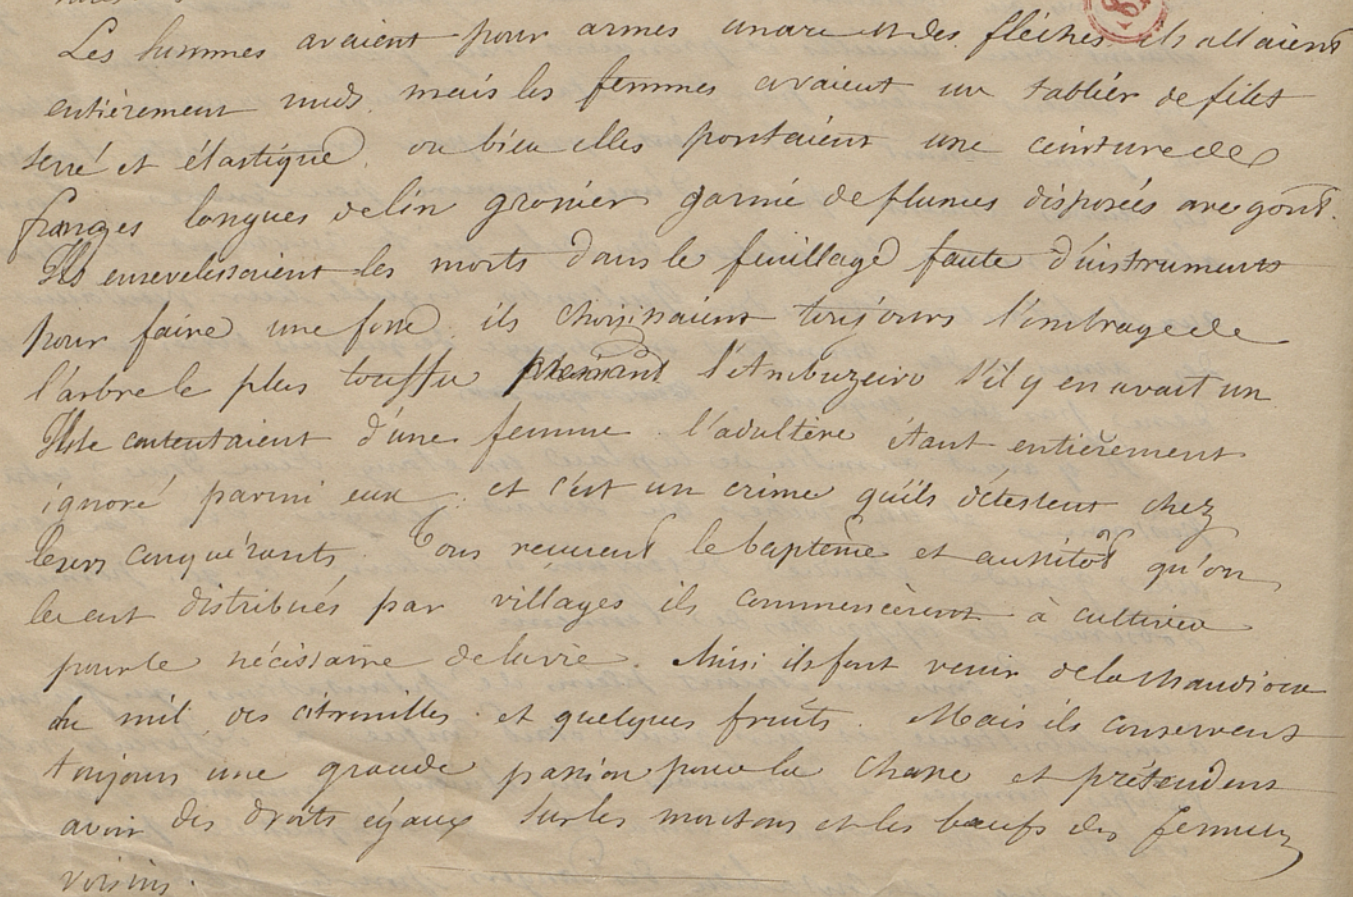 Les hommes avaient pour armes un arc et des flèches ils allaient
entièrement nuds mais les femmes avaient un tablier de filet
serré et élastique ou bien elles portaient une ceinture de
franges longues de lin grossier garnie de plumes disposées avec goût.
Ils ensevelissaient les morts dans le feuillage faute d'instruments
pour faire une fosse. ils choisissaient toujours l'ombrage de
l'arbre le plus touffu prenant l'Ambuzeiro s'il y en avait un
Ils se contentaient d'une femme. l'adultère étant entièrement
ignoré parmi eux. et c'est un crime qu'ils détestent chez
leurs conquérants. Tous reçurent le baptême et aussitôt qu'on
les eut distribués par villages ils commencèrent à cultiver
pour le nécissaire de la vie. Ainsi ils font venir de la
du mil, des citrouilles. et quelques fruits. Mais ils conservent
toujours une grande passion pour la chasse et prétendent
avoir des droits égaux sur les moutons et les bœufs des fermiers
voisins.